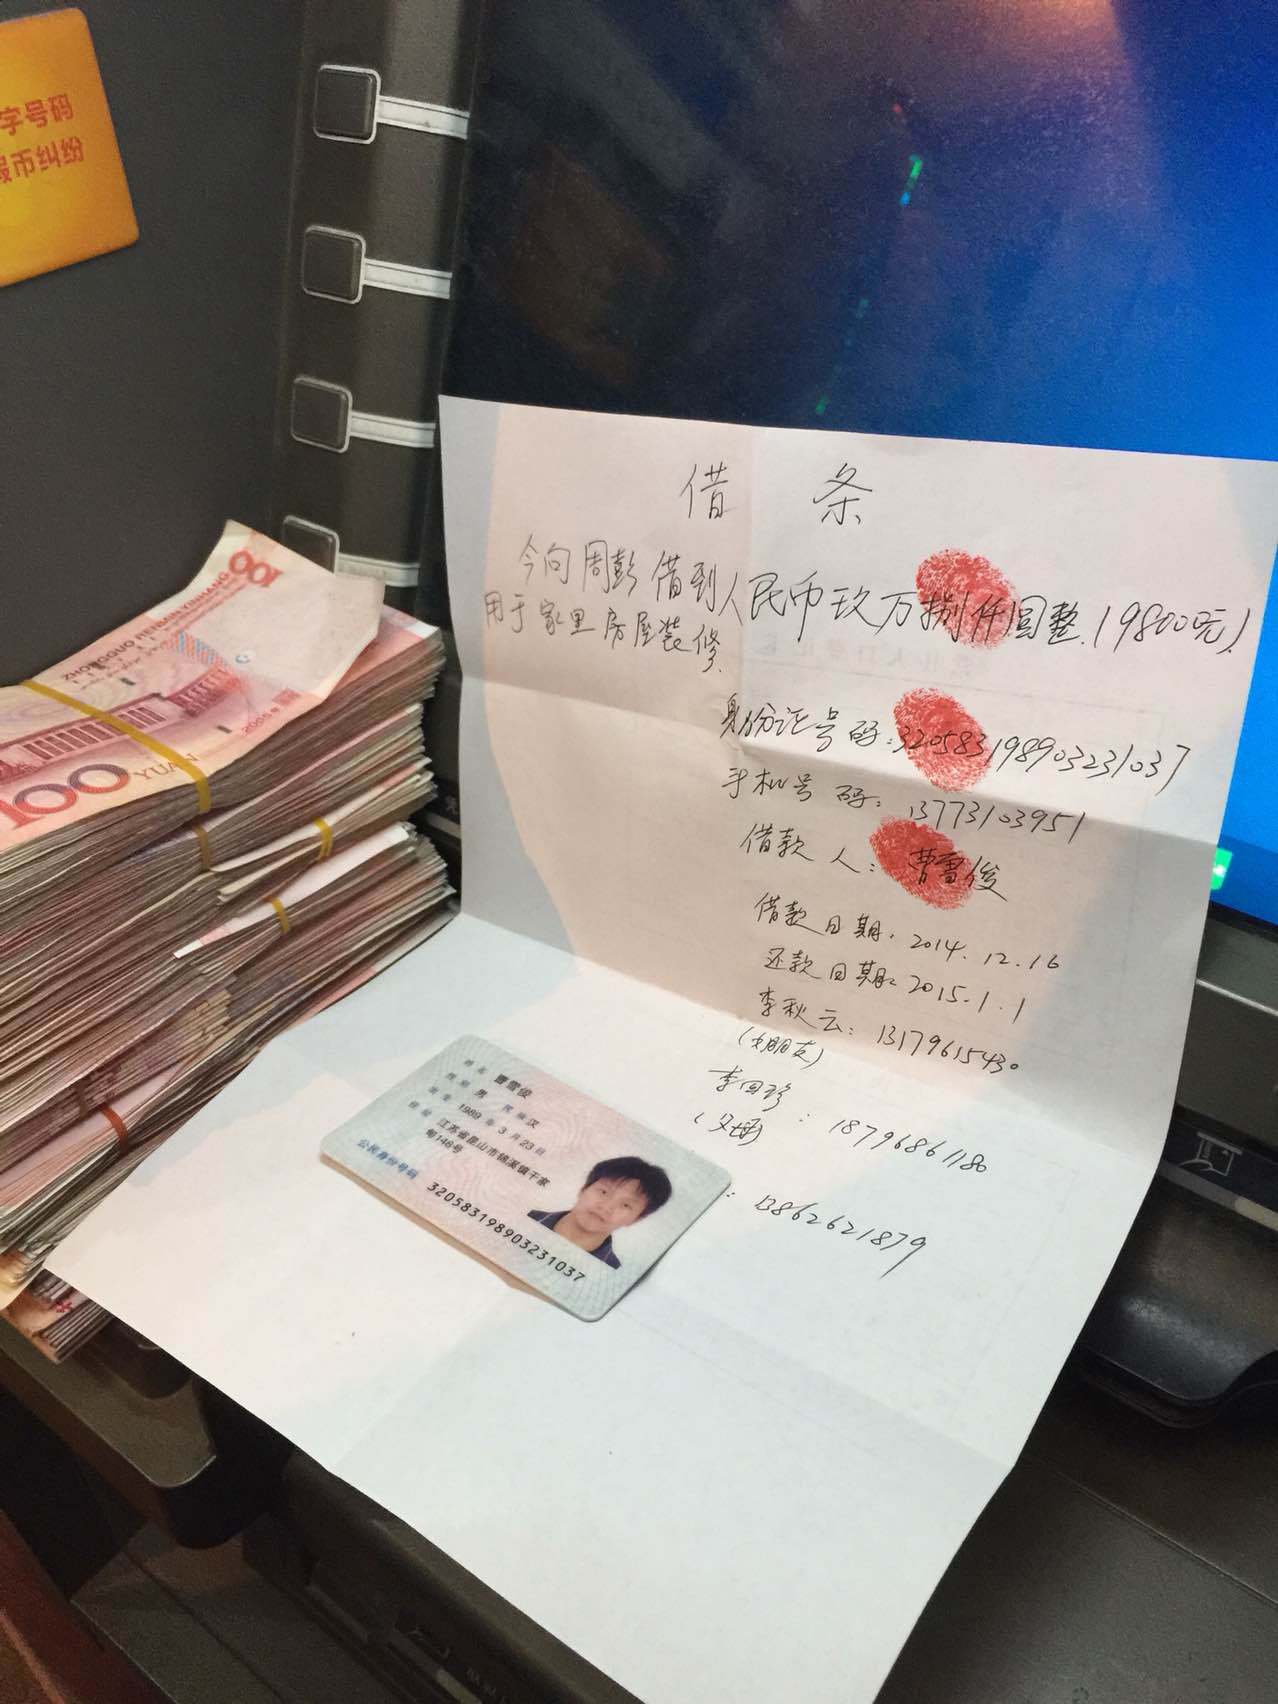 字号码
币纠纷
100
ZHONGGUO RENMIN YINHANG
2005年
100 YUAN
借 条
今向周彭借到人民币玖万捌仟圆整.(98000元).
用于家里房屋装修.
身份证号码:320583198903231037
手机号码:13773103951
借款人:曹雪俊
借款日期.2014.12.16
还款日期:2015.1.1
李秋云:13179615430
(女朋友)
: 18796861180
: 13862621879
姓名 曹雪俊
性别 男 民族 汉
出生 1989年3月23日
住址 江苏省昆山市锦溪镇千家
公民身份号码 320583198903231037